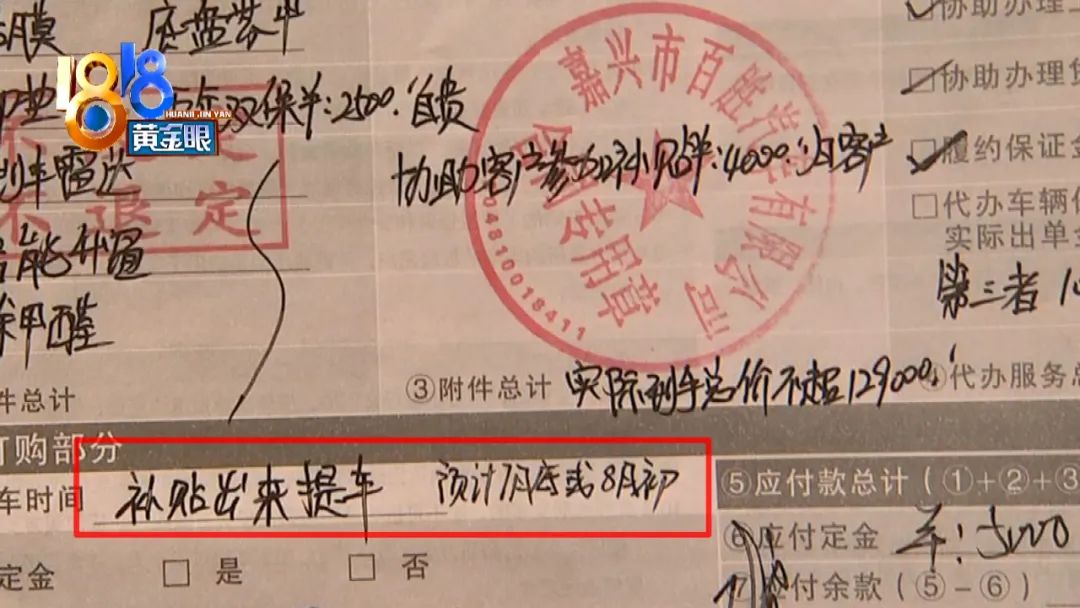 底盘装甲
协助办理
1818
HUANGJINYAN
黄金眼
双保半:2500.自贵
协助办理贷
嘉兴市百胜汽车有限公司
合同专用章
048100018411
不退定
协助客户参加补贴半:4000.归客户
履约保证金
代办车辆保
实际出单金
智能
除甲醛
第三者
件总计
③附件总计
实际到手总价不超129000,
④代办服务总
订购部分
车时间
补贴出来提车 预计7月底或8月初
⑤应付款总计(①+②+③
⑥应付定金
车:5000
定金
是
否
⑦应付余款(⑤-⑥)